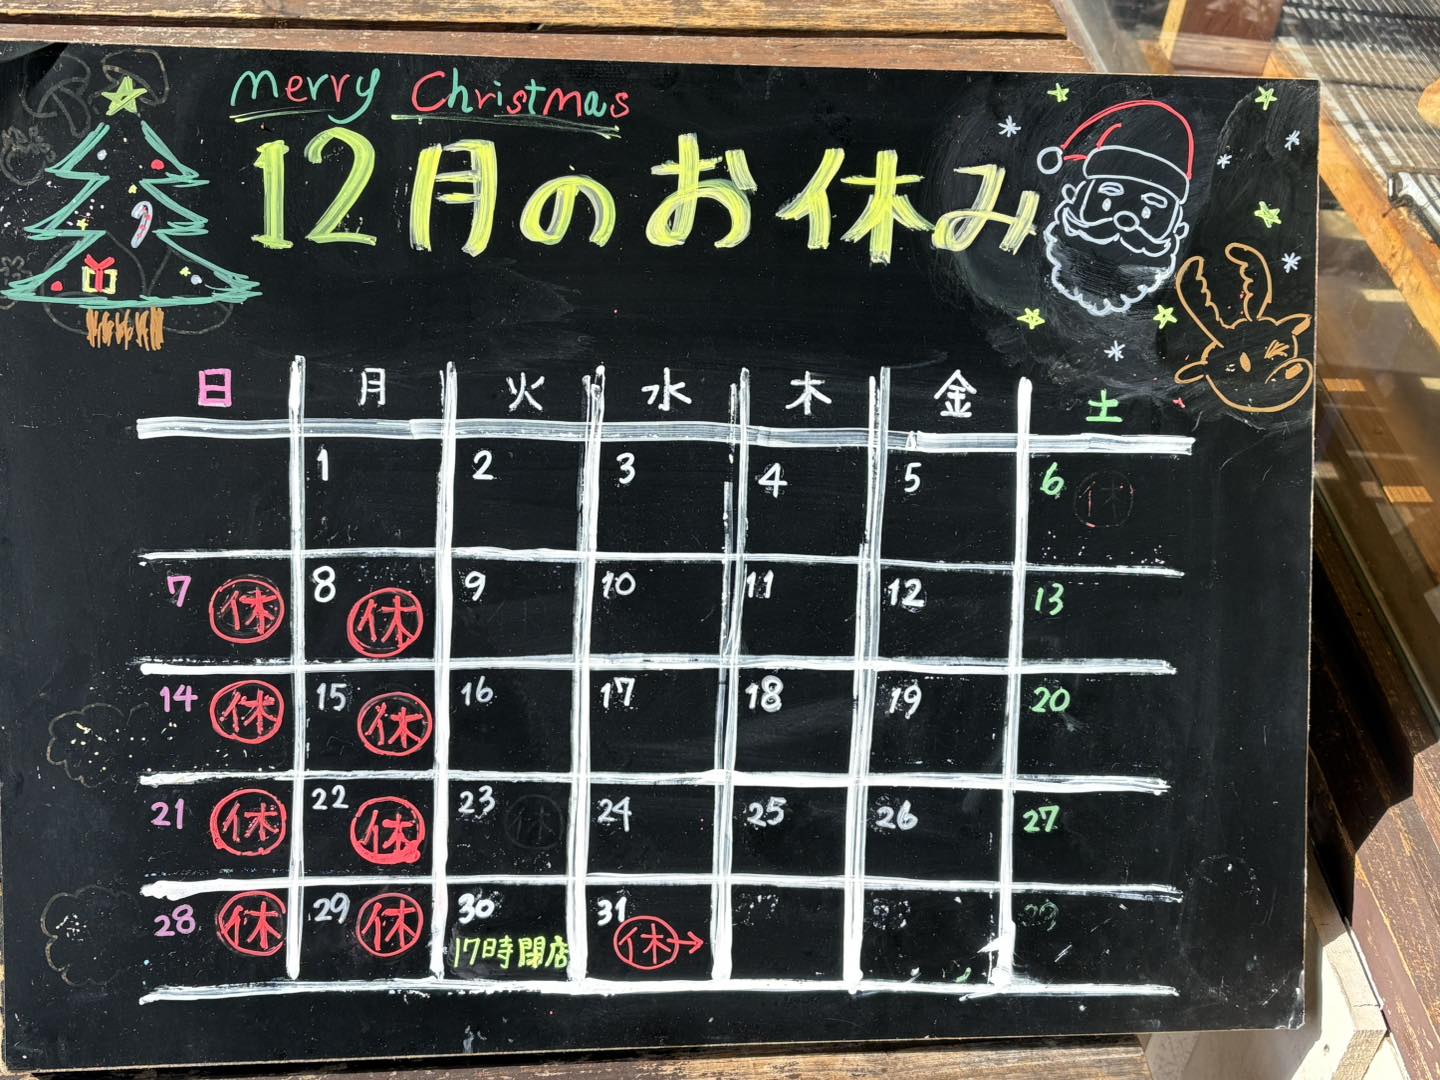 Merry Christmas
12月のお休み
日 月 火 水 木 金 土
1 2 3 4 5 6 休
7 休 8 休 9 10 11 12 13
14 休 15 休 16 17 18 19 20
21 休 22 休 23 休 24 25 26 27
28 休 29 休 30 31 休→
17時閉店